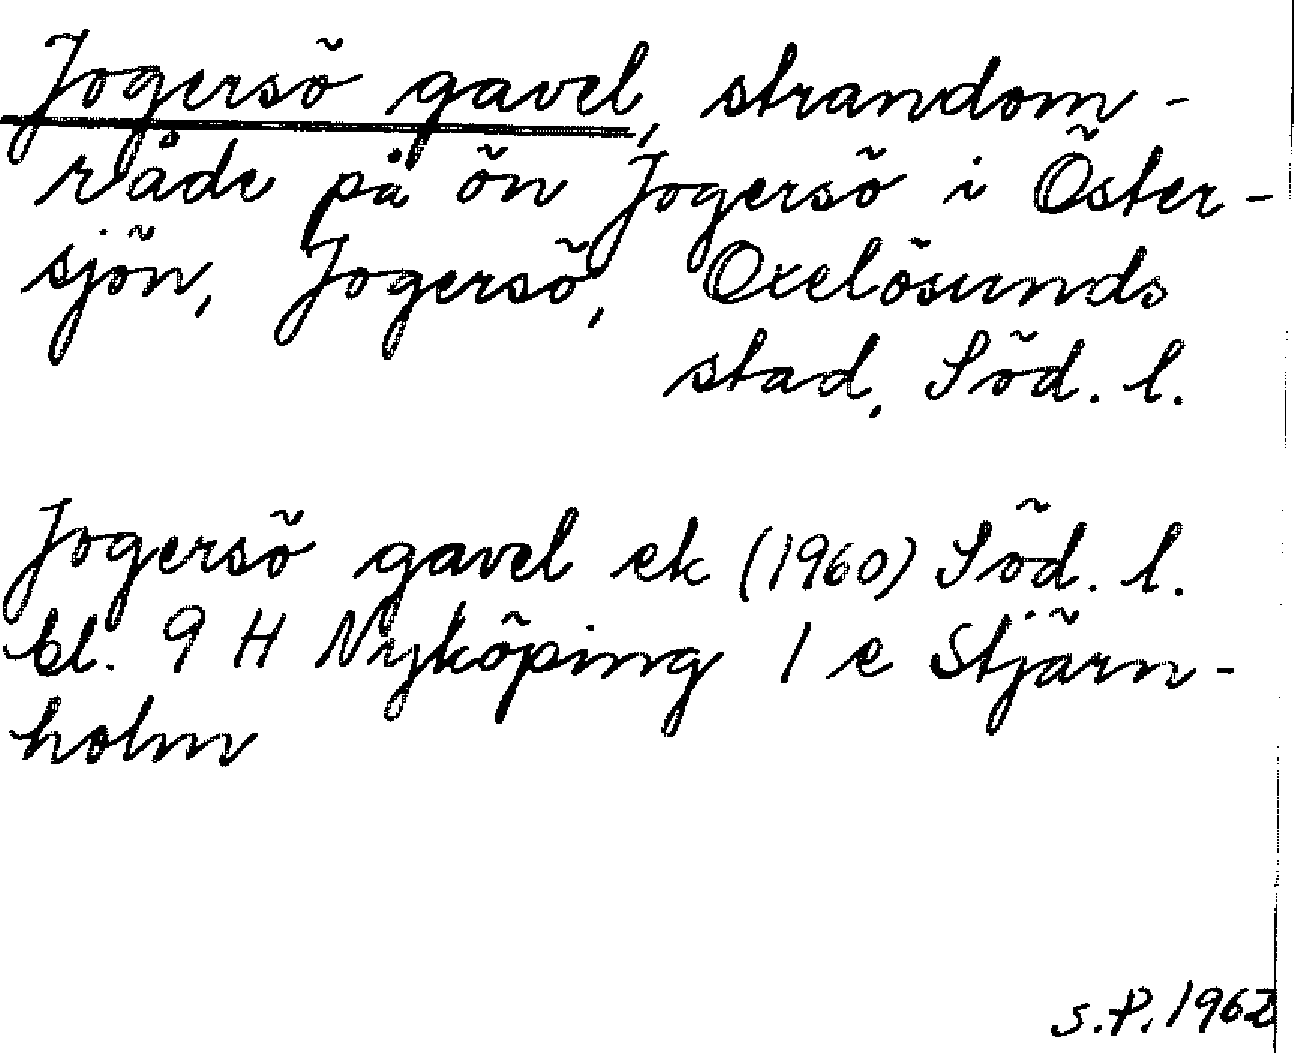 Jogersö gavel, strandom-
råde på ön Jogersö i Öster-
sjön, Jogersö, Oxelösunds
stad, Söd. l.
Jogersö gavel ek (1960) Söd. l.
bl. 9 H Nyköping 1 e Stjärn-
holm
S.P. 1962